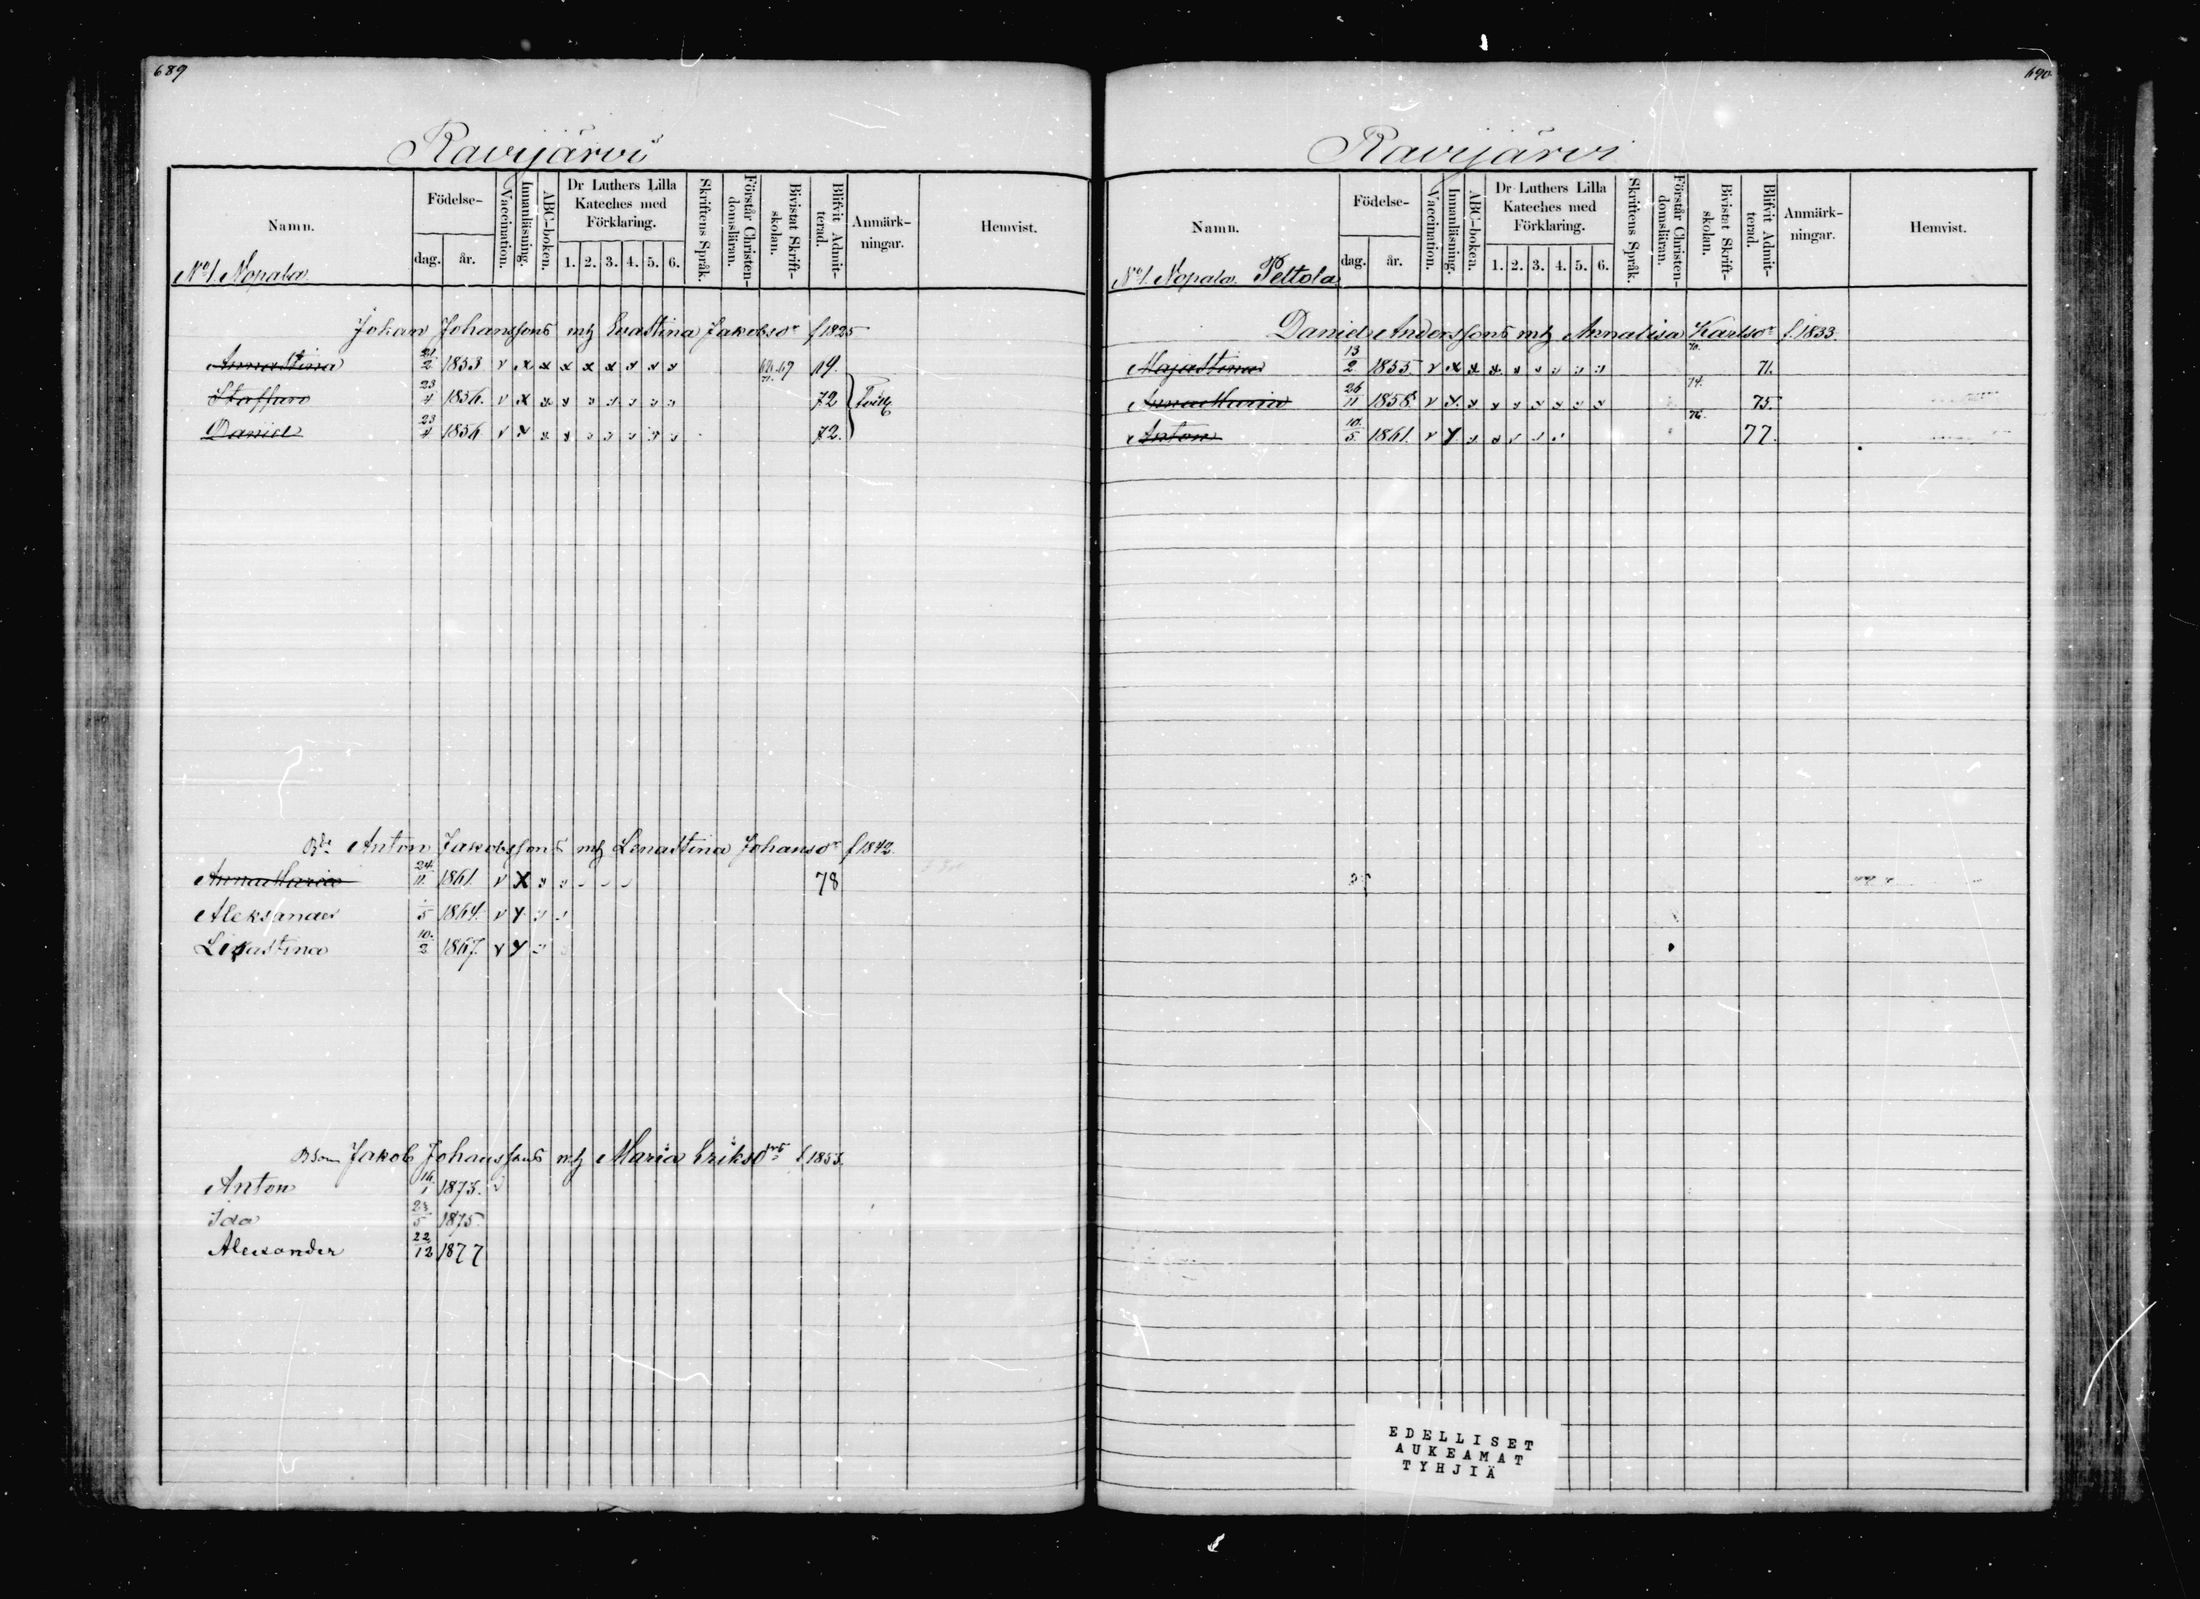 689
Ravijärvi
Namn. Födelse- dag. år. Vaccination. Innanläsning. ABC-boken. Dr Luthers Lilla Kateches med Förklaring. 1. 2. 3. 4. 5. 6. Skriftens Språk. Förstår Christendomsläran. Bivistat Skriftskolan. Blifvit Admitterad. Anmärkningar. Hemvist.
No 1. Nopala
Johan Johanssons mh Evastina Jakobsdr f 1825
Annastina 21/2 1853 v x x x x x x x x 19.
Staffan 23/4 1856. v x x x 72
Daniel 23/4 1856 v x x x 72.
Anton Jakobssons mh Lenastina Johansdr f 1842
Anna Maria 24/11 1861. v X 78
Aleksander 5 1864. v y
Lisastina 10/2 1867. v y
Bson Jakob Johanssons mh Maria Eriksdr f 1853.
Anton 16/1 1873. v
Ida 23/5 1875.
Alexander 22/12 1877
690
Ravijärvi
Namn. Födelse- dag. år. Vaccination. Innanläsning. ABC-boken. Dr Luthers Lilla Kateches med Förklaring. 1. 2. 3. 4. 5. 6. Skriftens Språk. Förstår Christendomsläran. Bivistat Skriftskolan. Blifvit Admitterad. Anmärkningar. Hemvist.
No 1. Nopala. Peltola
Daniel Anderssons mh Annalisa Karlsdr f. 1833.
Majastina 13/2 1855. v x x x 70. 71.
Anna Maria 26/11 1858. v x x 74. 75.
Anton 10/5 1861. v y 76. 77.
EDELLISET
AUKEAMAT
TYHJIÄ